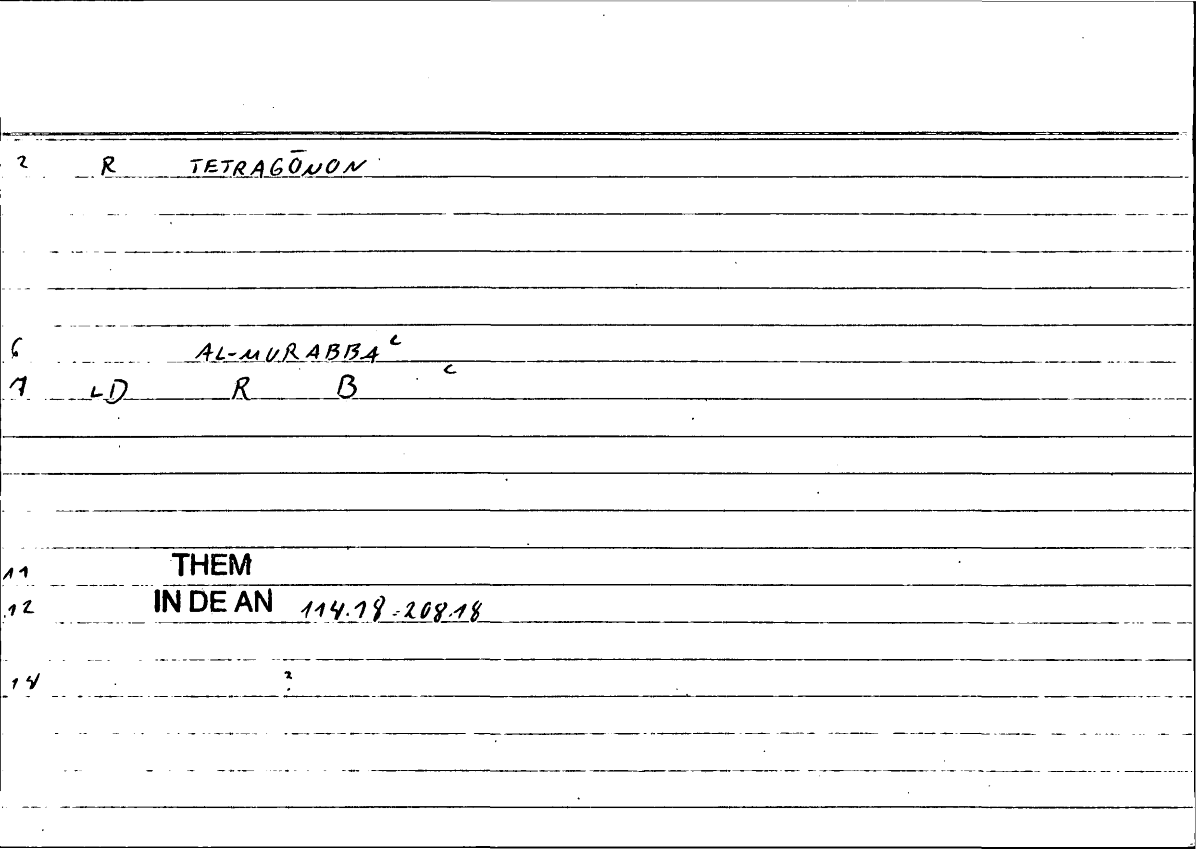 2 R TETRAGŌNON
6 AL-MURABBAʿ
7 LD R B ʿ
11 THEM
12 IN DE AN 114.18-208.18
14 2